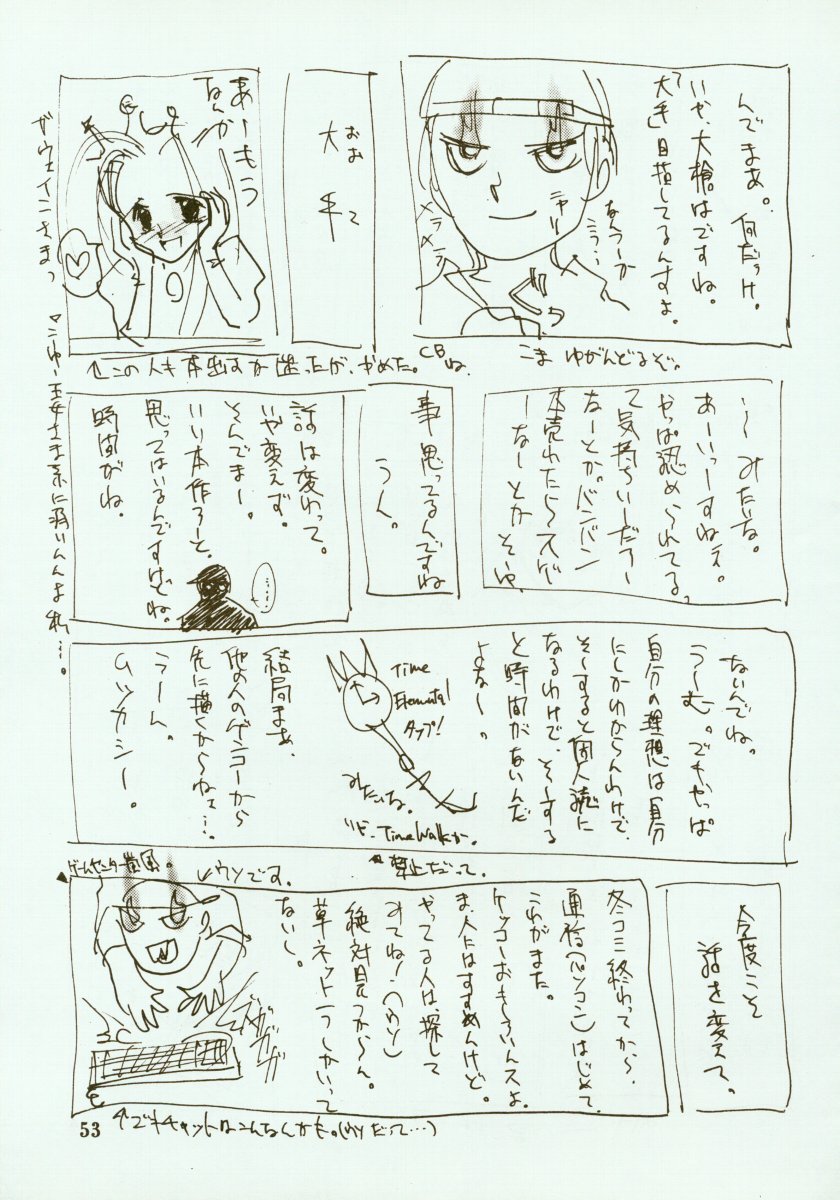 んでまあ。何だっけ。
いや、大槍はですね。
「大手」目指してるんすよ。
なんつーか
こう…
ニヤリ
メラ
メラ
こま ゆがんどるぞ。
おおて
大手
あーもう
なんかー
ガウェインさまっ
↑この人も本出すか迷ったが、やめた。CBね。
〜みたいな。
あーいっーすねぇ。
やっぱ認められてる
て気持ちいーだろー
なーとか。バンバン
本売れたらスゲ
ーなーとかそーゆ
事思ってるんですね
うん。
話は変わって。
いや変えず。
そんでまー。
いい本作ろーと、
思ってはいるんですけどね。
時間がね。
…
王女さま系に弱いんんよ私…。
ないんでね。
うーむ。でもやっぱ
自分の理想は自分
にしかわからんわけで、
そーすると個人誌に
なるわけで、そーする
と時間がないんだ
よなー。
Time
Elemental
タップ!
みたいな。
Time Walkか。
禁止だって。
結局まぁ、
他の人のゲンコーから
先に描くからねぇ…。
うーん。
ムツカシー。
今度こそ
話を変えて。
冬コミ終わってから、
通信(パソコン)はじめて、
これがまた。
ケッコーおもしろいんスよ。
ま、人にはすすめんけど。
やってる人は探して
みてね!(ウソ)
絶対見つからん。
草ネット一つしかいって
ないし。
ゲームセンター嵐風。
↙ウソです。
ガガガガ
↑でもチャットはこんなんかも。(ウソだって…)
53